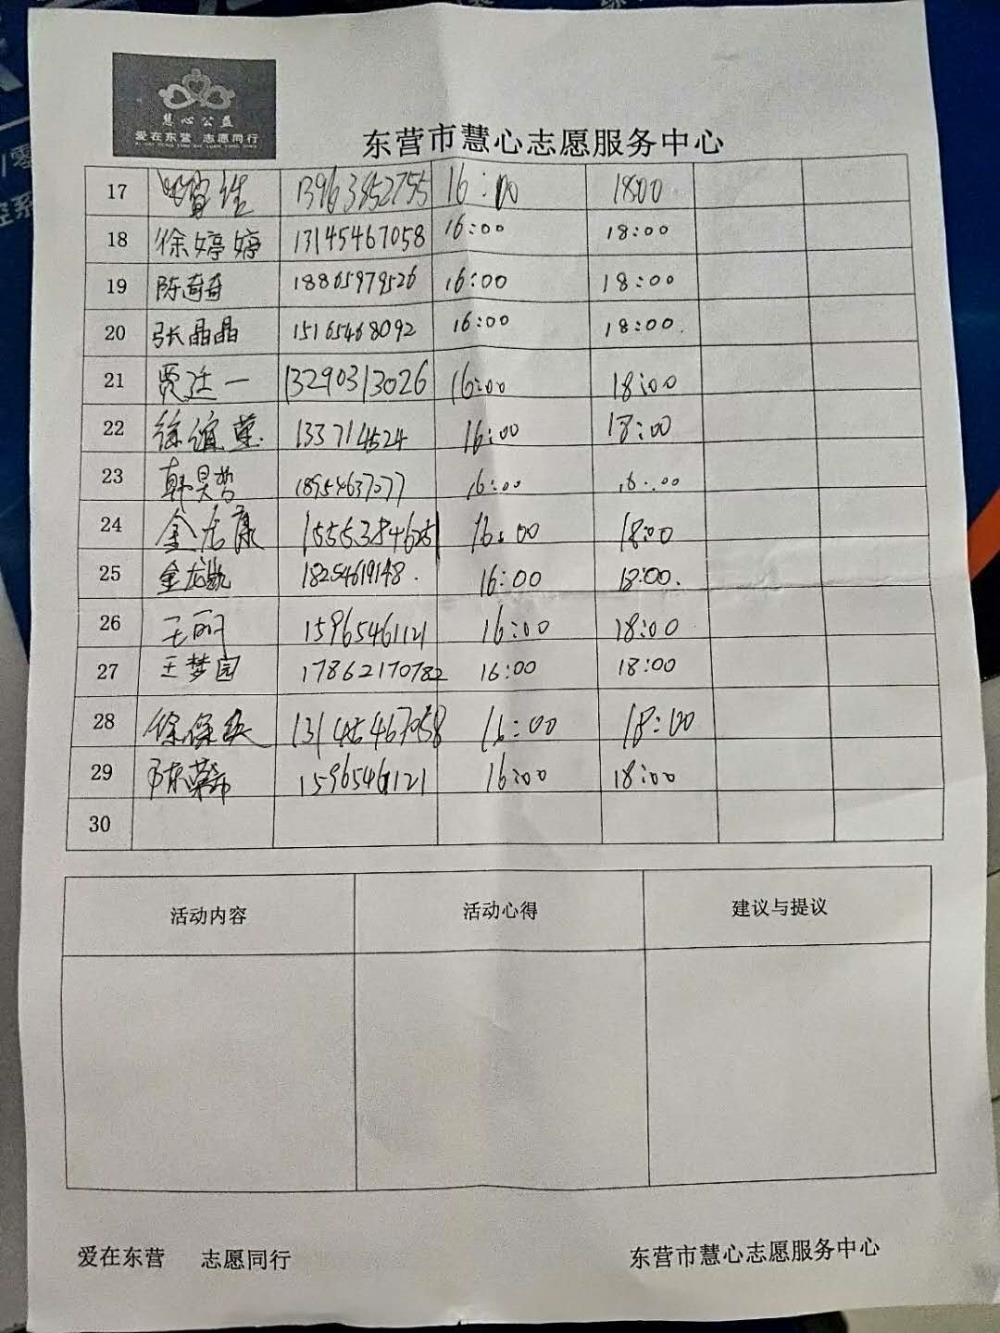 慧心公益
爱在东营 志愿同行
东营市慧心志愿服务中心
17 13963852755 16:00 18:00
18 徐婷婷 13145467058 16:00 18:00
19 陈奇奇 18865979526 16:00 18:00
20 张晶晶 15165468092 16:00 18:00.
21 贾廷一 13290313026 16:00 18:00
22 133714524 16:00 18:00
23 韩昊哲 18954637077 16:00 16:00
24 金志康 15553784625 16:00 18:00
25 金龙凯 18254619148. 16:00 18:00.
26 王丽 15965461121 16:00 18:00
27 王梦园 17862170782 16:00 18:00
28 13145467058 16:00 18:00
29 15965461121 16:00 18:00
30
活动内容 活动心得 建议与提议
爱在东营 志愿同行 东营市慧心志愿服务中心